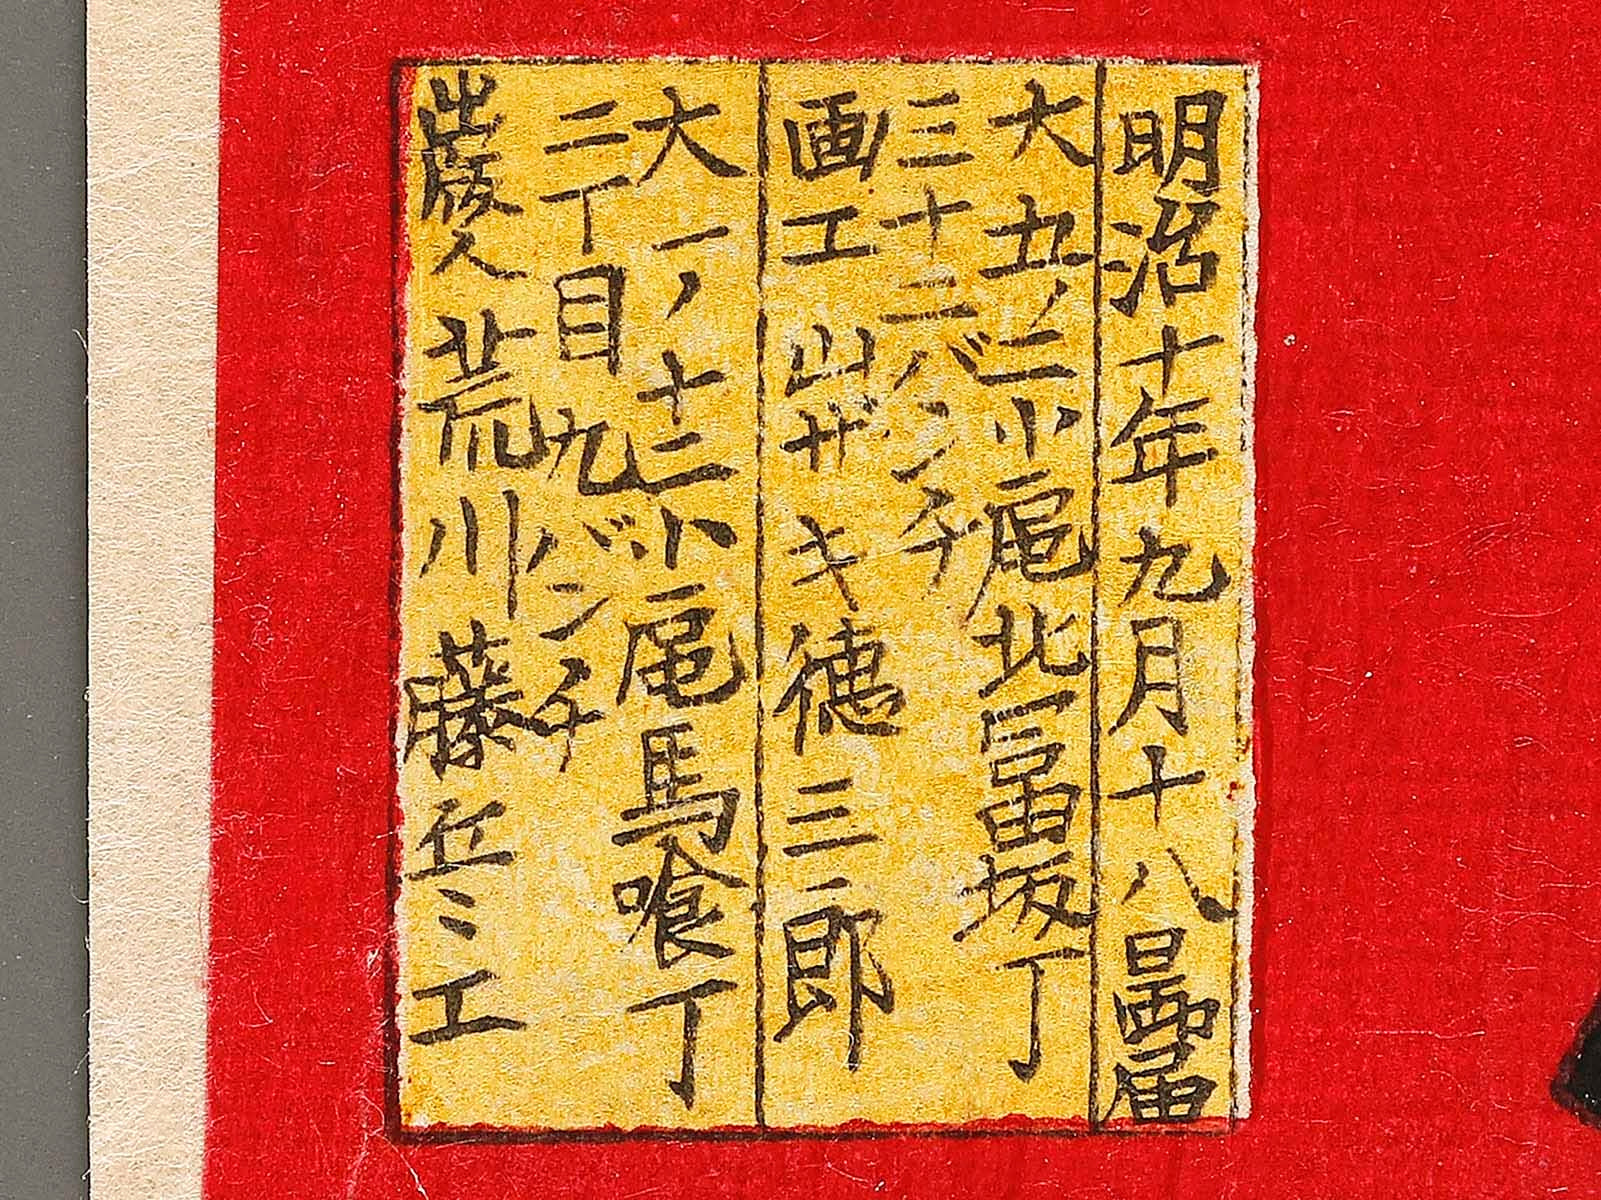 明治十年九月十八日御届
大五ノ二小區北冨坂丁
三十二バンチ
画工山サキ徳三郎
大一ノ十二小區馬喰丁
二丁目九バンチ
出版人荒川藤兵ヱ